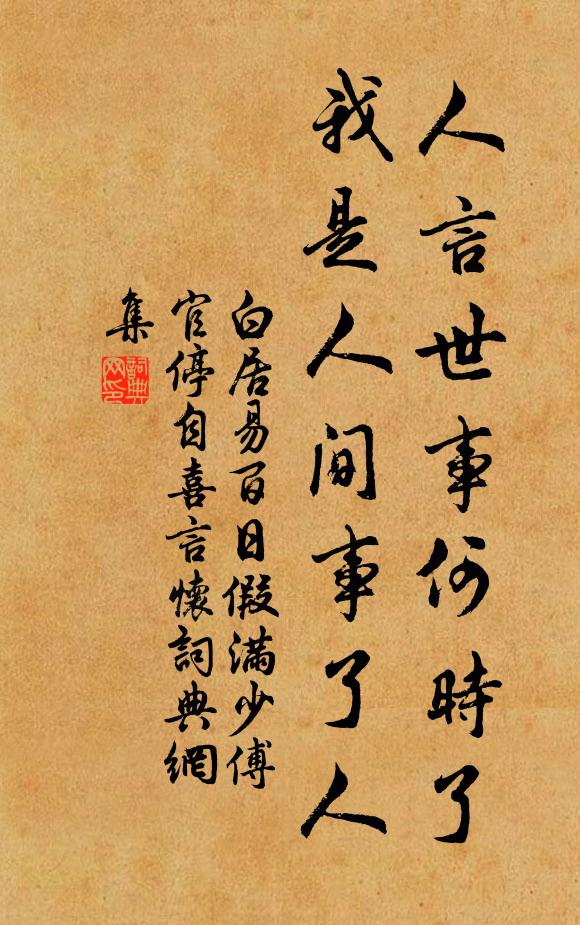 人言世事何時了
我是人間事了人
白居易百日假滿少傅
官停自喜言懷詞典網
集
詞典網印